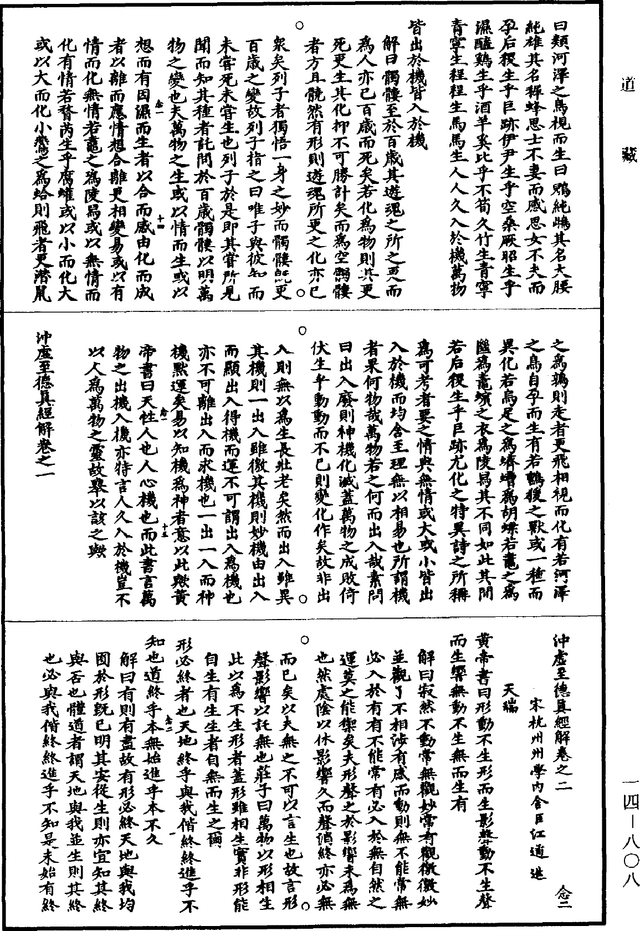 道藏
曰類河澤之鳥視而生曰鶂純雌其名大腰
純雄其名稺蜂思士不妻而感思女不夫而
孕后稷生乎巨跡伊尹生乎空桑厥昭生乎
濕醯雞生乎酒羊奚比乎不筍久竹生青寧
青寧生程程生馬馬生人人久入於機萬物
皆出於機皆入於機
解曰髑髏至於百歲其遊魂之所之更而
為人亦已百歲而死矣若化為物則其更
死更生其化抑不可勝計矣而為空髑髏
者方且髐然有形則遊魂所更之化亦已
衆矣列子者獨悟一身之妙而髑髏既更
百歲之變故列子指之曰唯子與彼知而
未嘗死未嘗生也列子於是即其嘗所見
聞而知其種者託問於百歲髑髏以明萬
物之變也夫萬物之生或以情而生或以
想而有因濕而生者以合而感由化而成
者以離而應情想合離更相變易或以有
情而化無情若鼃之為陵舄或以無情而
化有情若瞀芮生乎腐蠸或以小而化大
或以大而化小鷰之為蛤則飛者更潛鼠
之為鶉則走者更飛相視而化有若河澤
之鳥自孕而生有若亶爰之獸或一種而
異化若烏足之為蠐螬為胡蝶若鼃之為
㡭為鼃蠙之衣為陵舄其不同如此其間
若后稷生乎巨跡尤化之特異詩之所稱
為可考者要之情與無情或大或小皆出
入於機而均含至理無以相易也所謂機
者果何物哉萬物若之何而出入哉素問
曰出入廢則神機化滅蓋萬物之成敗倚
伏生乎動動而不已則變化作矣故非出
入則無以為生長壯老矣然而出入雖異
其機則一出入雖微其機則妙機由出入
而顯出入得機而運不可謂出入為機也
亦不可離出入而求機也一出一入而神
機默運矣易以知機為神者意以此歟黃
帝書曰天性人也人心機也而此書言萬
物之出機入機亦特言人久入於機豈不
以人為萬物之靈故舉以該之歟
沖虛至德真經解卷之一
沖虛至德真經解卷之二
宋杭州州學內舍臣江遹進
天瑞
黃帝書曰形動不生形而生影聲動不生聲
而生響無動不生無而生有
解曰寂然不動常無觀妙常有觀徼徼妙
並觀了不相涉有感而動則無不能常無
必入於有有不能常有必入於無自然之
運莫之能禦矣夫形聲之於影響未為無
也然處陰以休影響久而聲消終亦必無
而已矣以夫無之不可以言生也故言形
聲影響以託無也莊子曰萬物以形相生
此以為不生形者蓋形雖相生實非形能
自生有生生者自無而生之爾
形必終者也天地終乎與我偕終終進乎不
知也道終乎本無始進乎本不久
解曰有則有盡故有形必終天地與我均
囿於形既已明其安從生則亦宜知其終
與否也體道者謂天地與我並生則其終
也必與我偕終終進乎不知是未始有終
念二
一四—八〇八